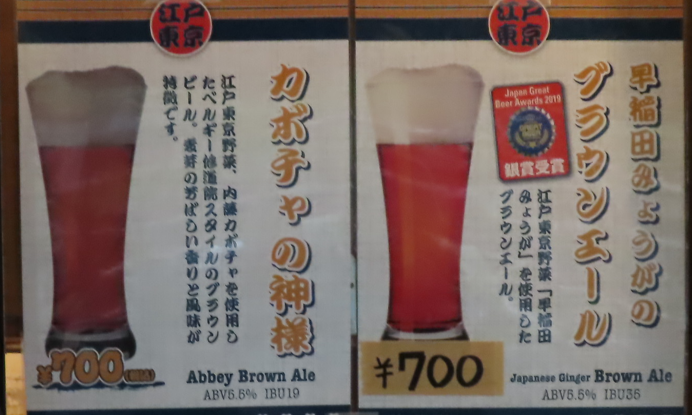 江戸
東京
カボチャの神様
江戸東京野菜、内藤カボチャを使用し
たベルギー修道院スタイルのブラウン
ビール。麦芽の芳ばしい香りと風味が
特徴です。
¥700(税込)
Abbey Brown Ale
ABV5.5% IBU19
江戸
東京
早稲田みょうがの
ブラウンエール
Japan Great
Beer Awards 2019
銀賞受賞
江戸東京野菜「早稲田
みょうが」を使用した
ブラウンエール。
¥700
Japanese Ginger Brown Ale
ABV5.5% IBU35